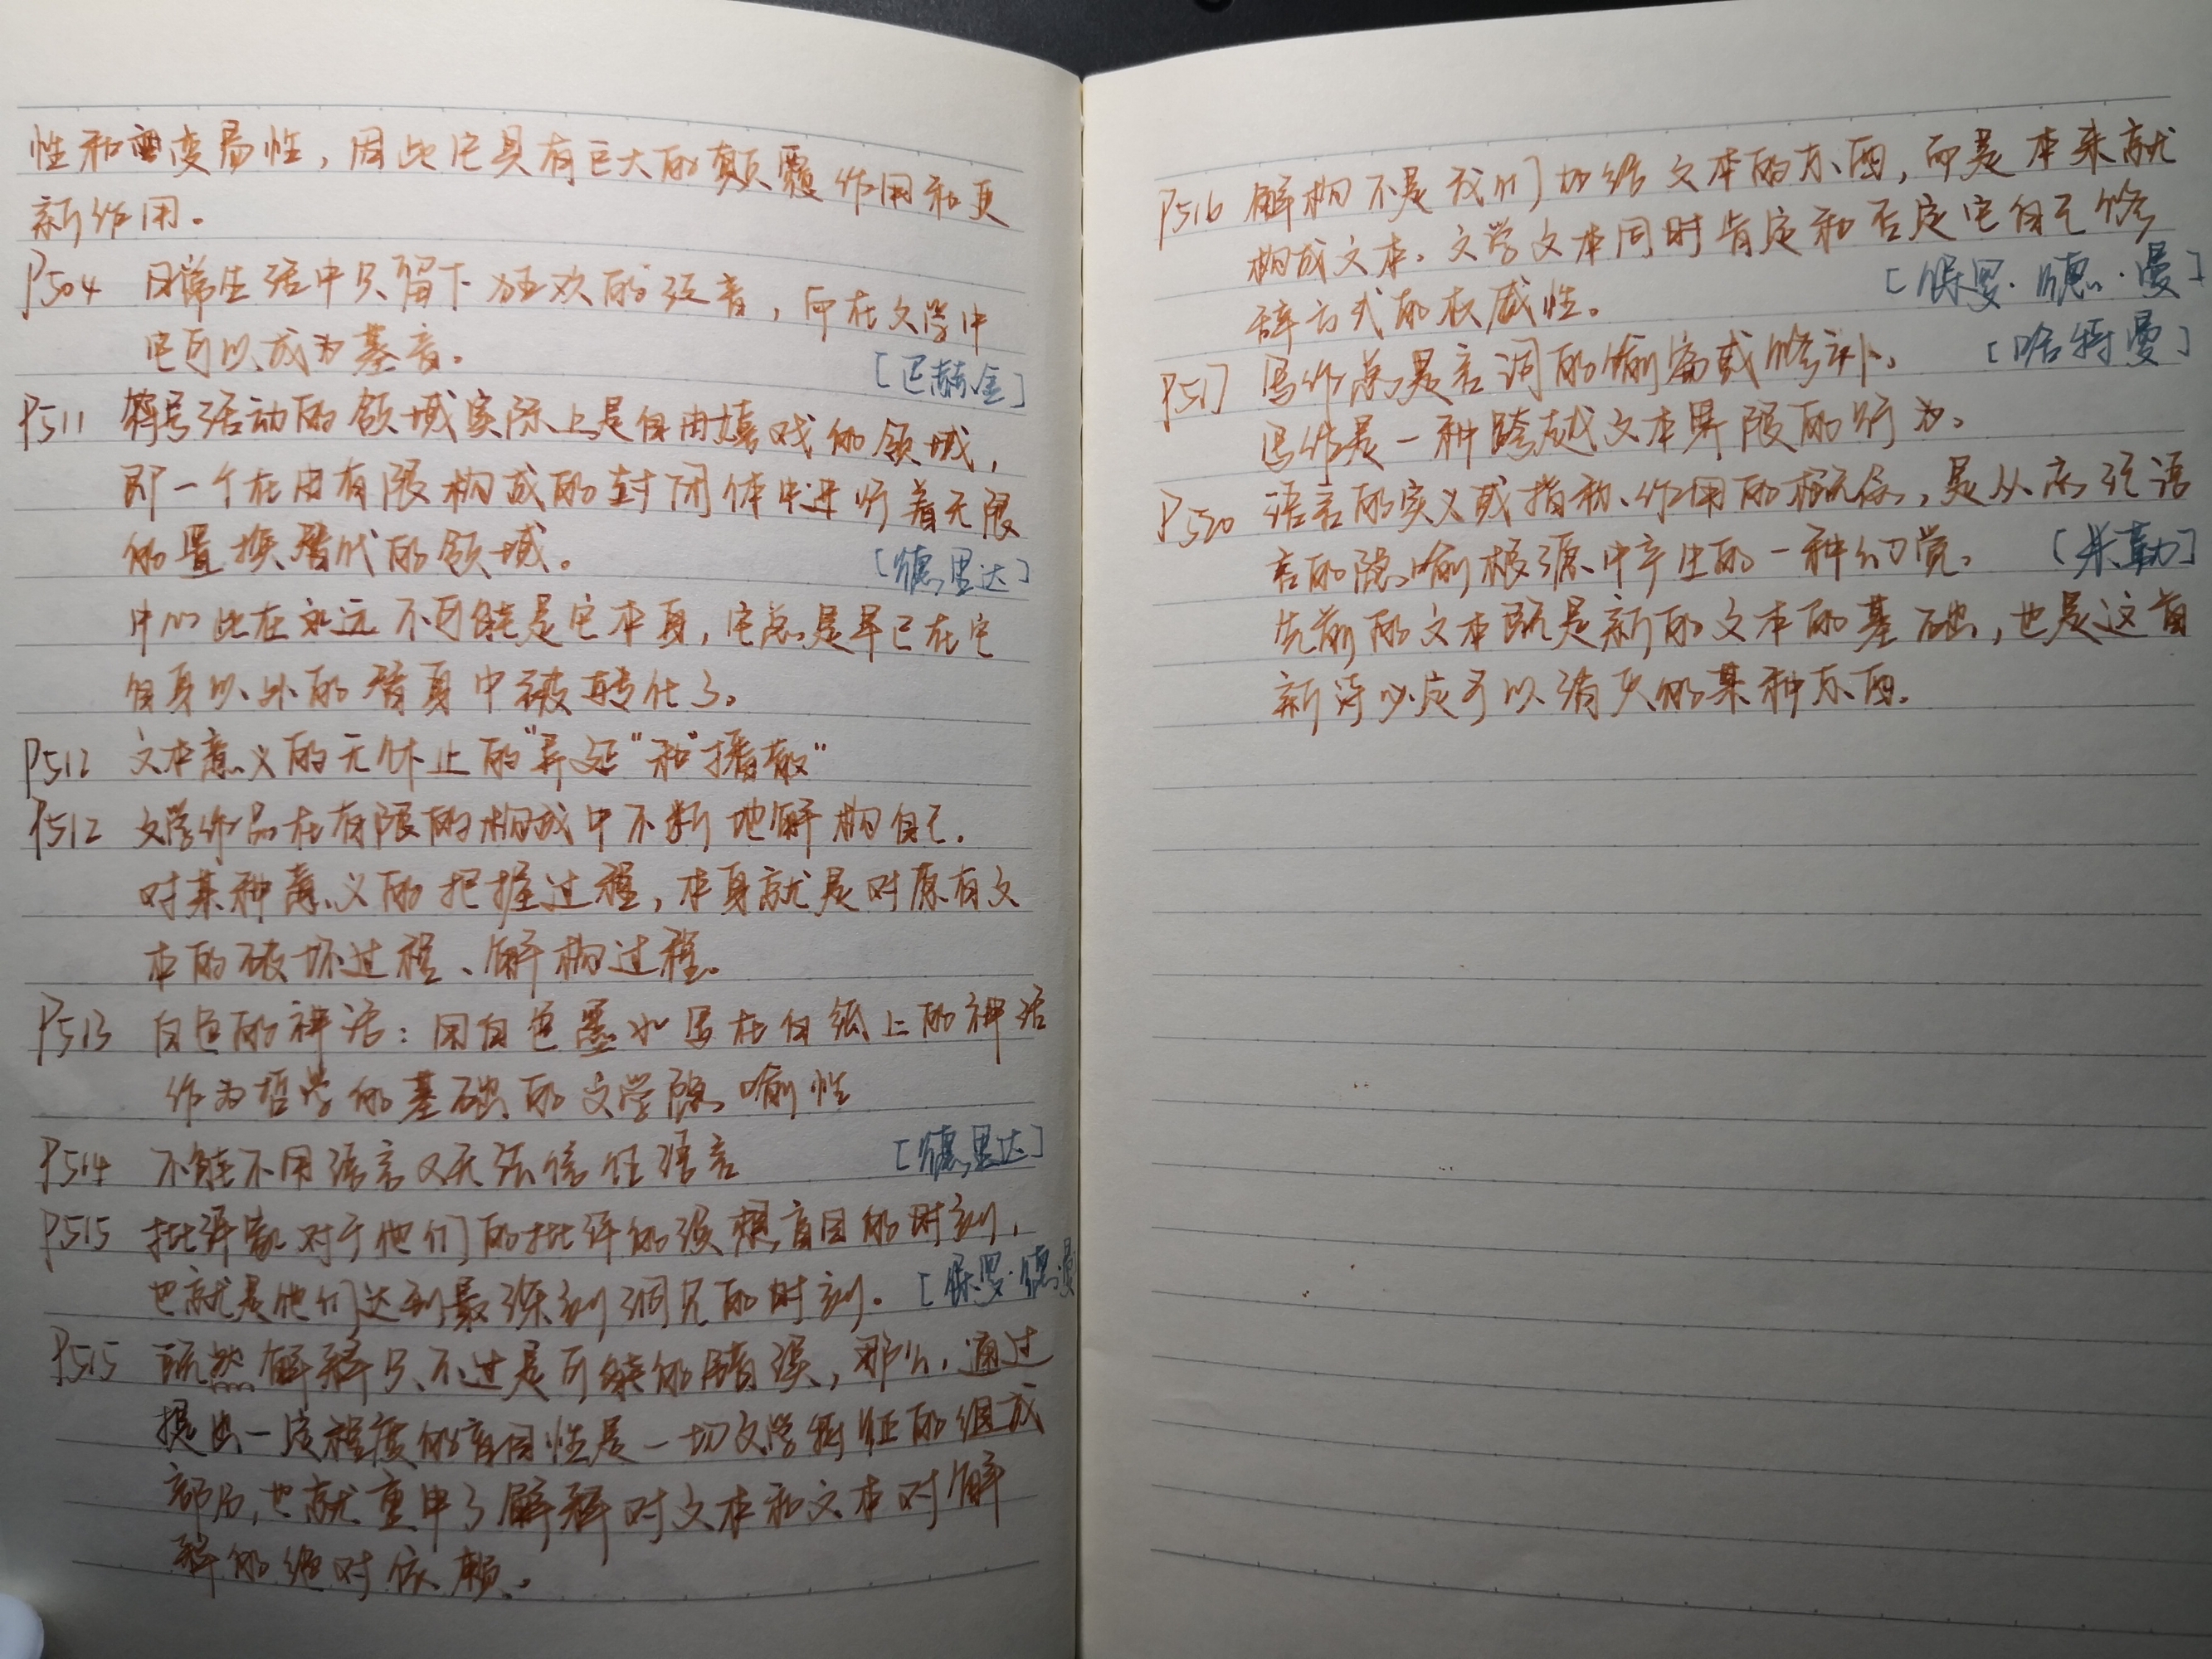 性和变易性，因此它具有巨大的颠覆作用和更
新作用。
P504 日常生活中只留下狂欢的泛音，而在文学中
它可以成为基音。
[巴赫金]
P511 符号活动的领域实际上是自由嬉戏的领域，
即一个在由有限构成的封闭体中进行着无限
的置换替代的领域。
[德里达]
中心此在永远不可能是它本身，它总是早已在它
自身以外的替身中被转化了。
P512 文本意义的无休止的"异延"和"播散"
P512 文学作品在有限的构成中不断地解构自己.
对某种意义的把握过程，本身就是对原有文
本的破坏过程、解构过程。
P513 白色的神话：用白色墨水写在白纸上的神话
作为哲学的基础的文学隐喻性
P514 不能不用语言又无法信任语言 [德里达]
P515 批评家对于他们的批评的设想盲目的时刻，
也就是他们达到最深刻洞见的时刻。[保罗·德·曼
P515 既然解释只不过是可能的错误，那么，通过
提出一定程度的盲目性是一切文学特征的组成
部分，也就重申了解释对文本和文本对解
释的绝对依赖。
P516 解构不是我们加给文本的东西，而是本来就
构成文本。文学文本同时肯定和否定它自己修
辞方式的权威性。 [保罗·德·曼]
P517 写作总是言词的偷窃或修补。 [哈特曼]
写作是一种跨越文本界限的行为。
P520 语言的实义或指称作用的概念，是从忘记语
言的隐喻根源中产生的一种幻觉。 [米勒]
先前的文本既是新的文本的基础，也是这首
新诗必定予以消灭的某种东西。